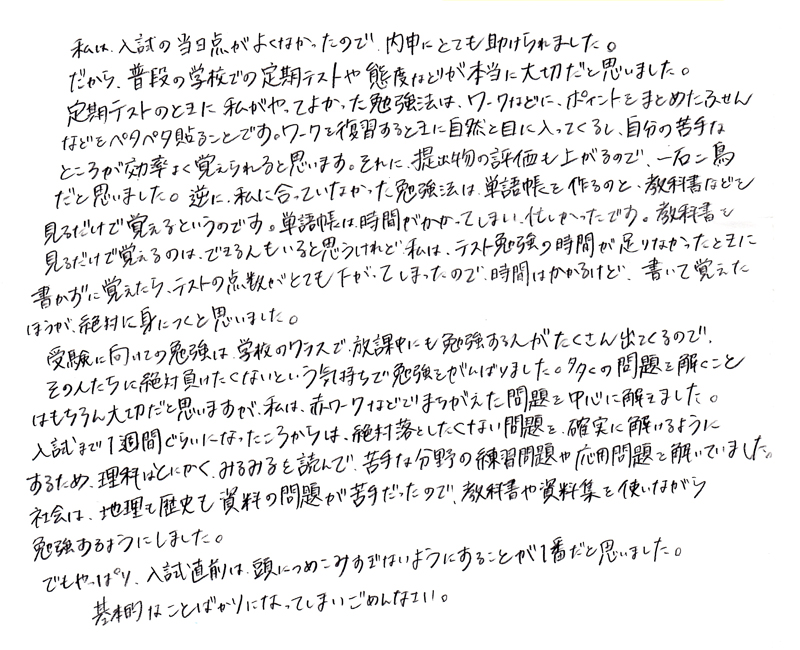 私は、入試の当日点がよくなかったので、内申にとても助けられました。
だから、普段の学校での定期テストや態度などが本当に大切だと思いました。
定期テストのときに私がやってよかった勉強法は、ワークなどに、ポイントをまとめたふせん
などをペタペタ貼ることです。ワークを復習するときに自然と目に入ってくるし、自分の苦手な
ところが効率よく覚えられると思います。それに、提出物の評価も上がるので、一石二鳥
だと思いました。逆に、私に合っていなかった勉強法は、単語帳を作るのと、教科書などを
見るだけで覚えるというのです。単語帳は、時間がかかってしまい、忙しかったです。教科書を
見るだけで覚えるのは、できる人もいると思うけれど、私は、テスト勉強の時間が足りなかったときに
書かずに覚えたら、テストの点数がとても下がってしまったので、時間はかかるけど、書いて覚えた
ほうが、絶対に身につくと思いました。
受験に向けての勉強は、学校のクラスで、放課中にも勉強する人がたくさん出てくるので、
その人たちに絶対負けたくないという気持ちで勉強をがんばりました。多くの問題を解くこと
はもちろん大切だと思いますが、私は、赤ワークなどでまちがえた問題を中心に解きました。
入試まで1週間ぐらいになったころからは、絶対落としたくない問題を、確実に解けるように
するため、理科はとにかく、みるみるを読んで、苦手な分野の練習問題や応用問題を解いていました。
社会は、地理も歴史も資料の問題が苦手だったので、教科書や資料集を使いながら
勉強するようにしました。
でもやっぱり、入試直前は、頭につめこみすぎないようにすることが1番だと思いました。
基本的なことばかりになってしまいごめんなさい。